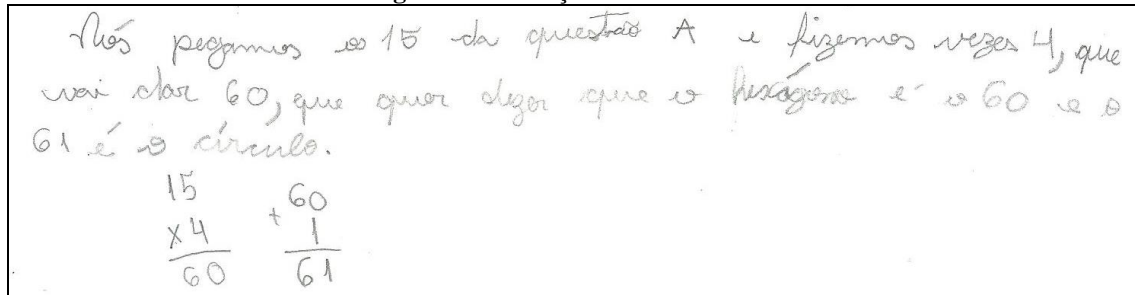 Nós pegamos o 15 da questão A e fizemos vezes 4, que
vai dar 60, que quer dizer que o hexágono é o 60 e o
61 é o círculo.
15 60
x4 + 1
60 61